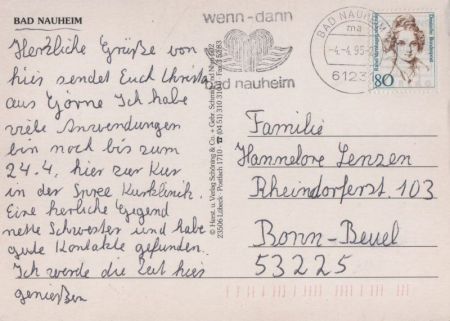 BAD NAUHEIM
Herzliche Grüße von
hier sendet Euch Christa
aus Görne Ich habe
viele Anwendungen
bin noch bis zum
24.4. hier zur Kur
in der Kurklinik.
Eine herliche Gegend
nette Schwester und habe
gute Kontakte gefunden.
Ich werde die Zeit hier
genießen
© Herst. u. Verlag Schöning & Co. + Gebr. Schmidt
23506 Lübeck · Postfach 1710
wenn-dann
bad nauheim
BAD NAUHEIM
ma
-4.-4.95
6123
Deutsche Bundespost
80
Familie
Hannelore Lenzen
Rheindorferst 103
Bonn-Beuel
53225